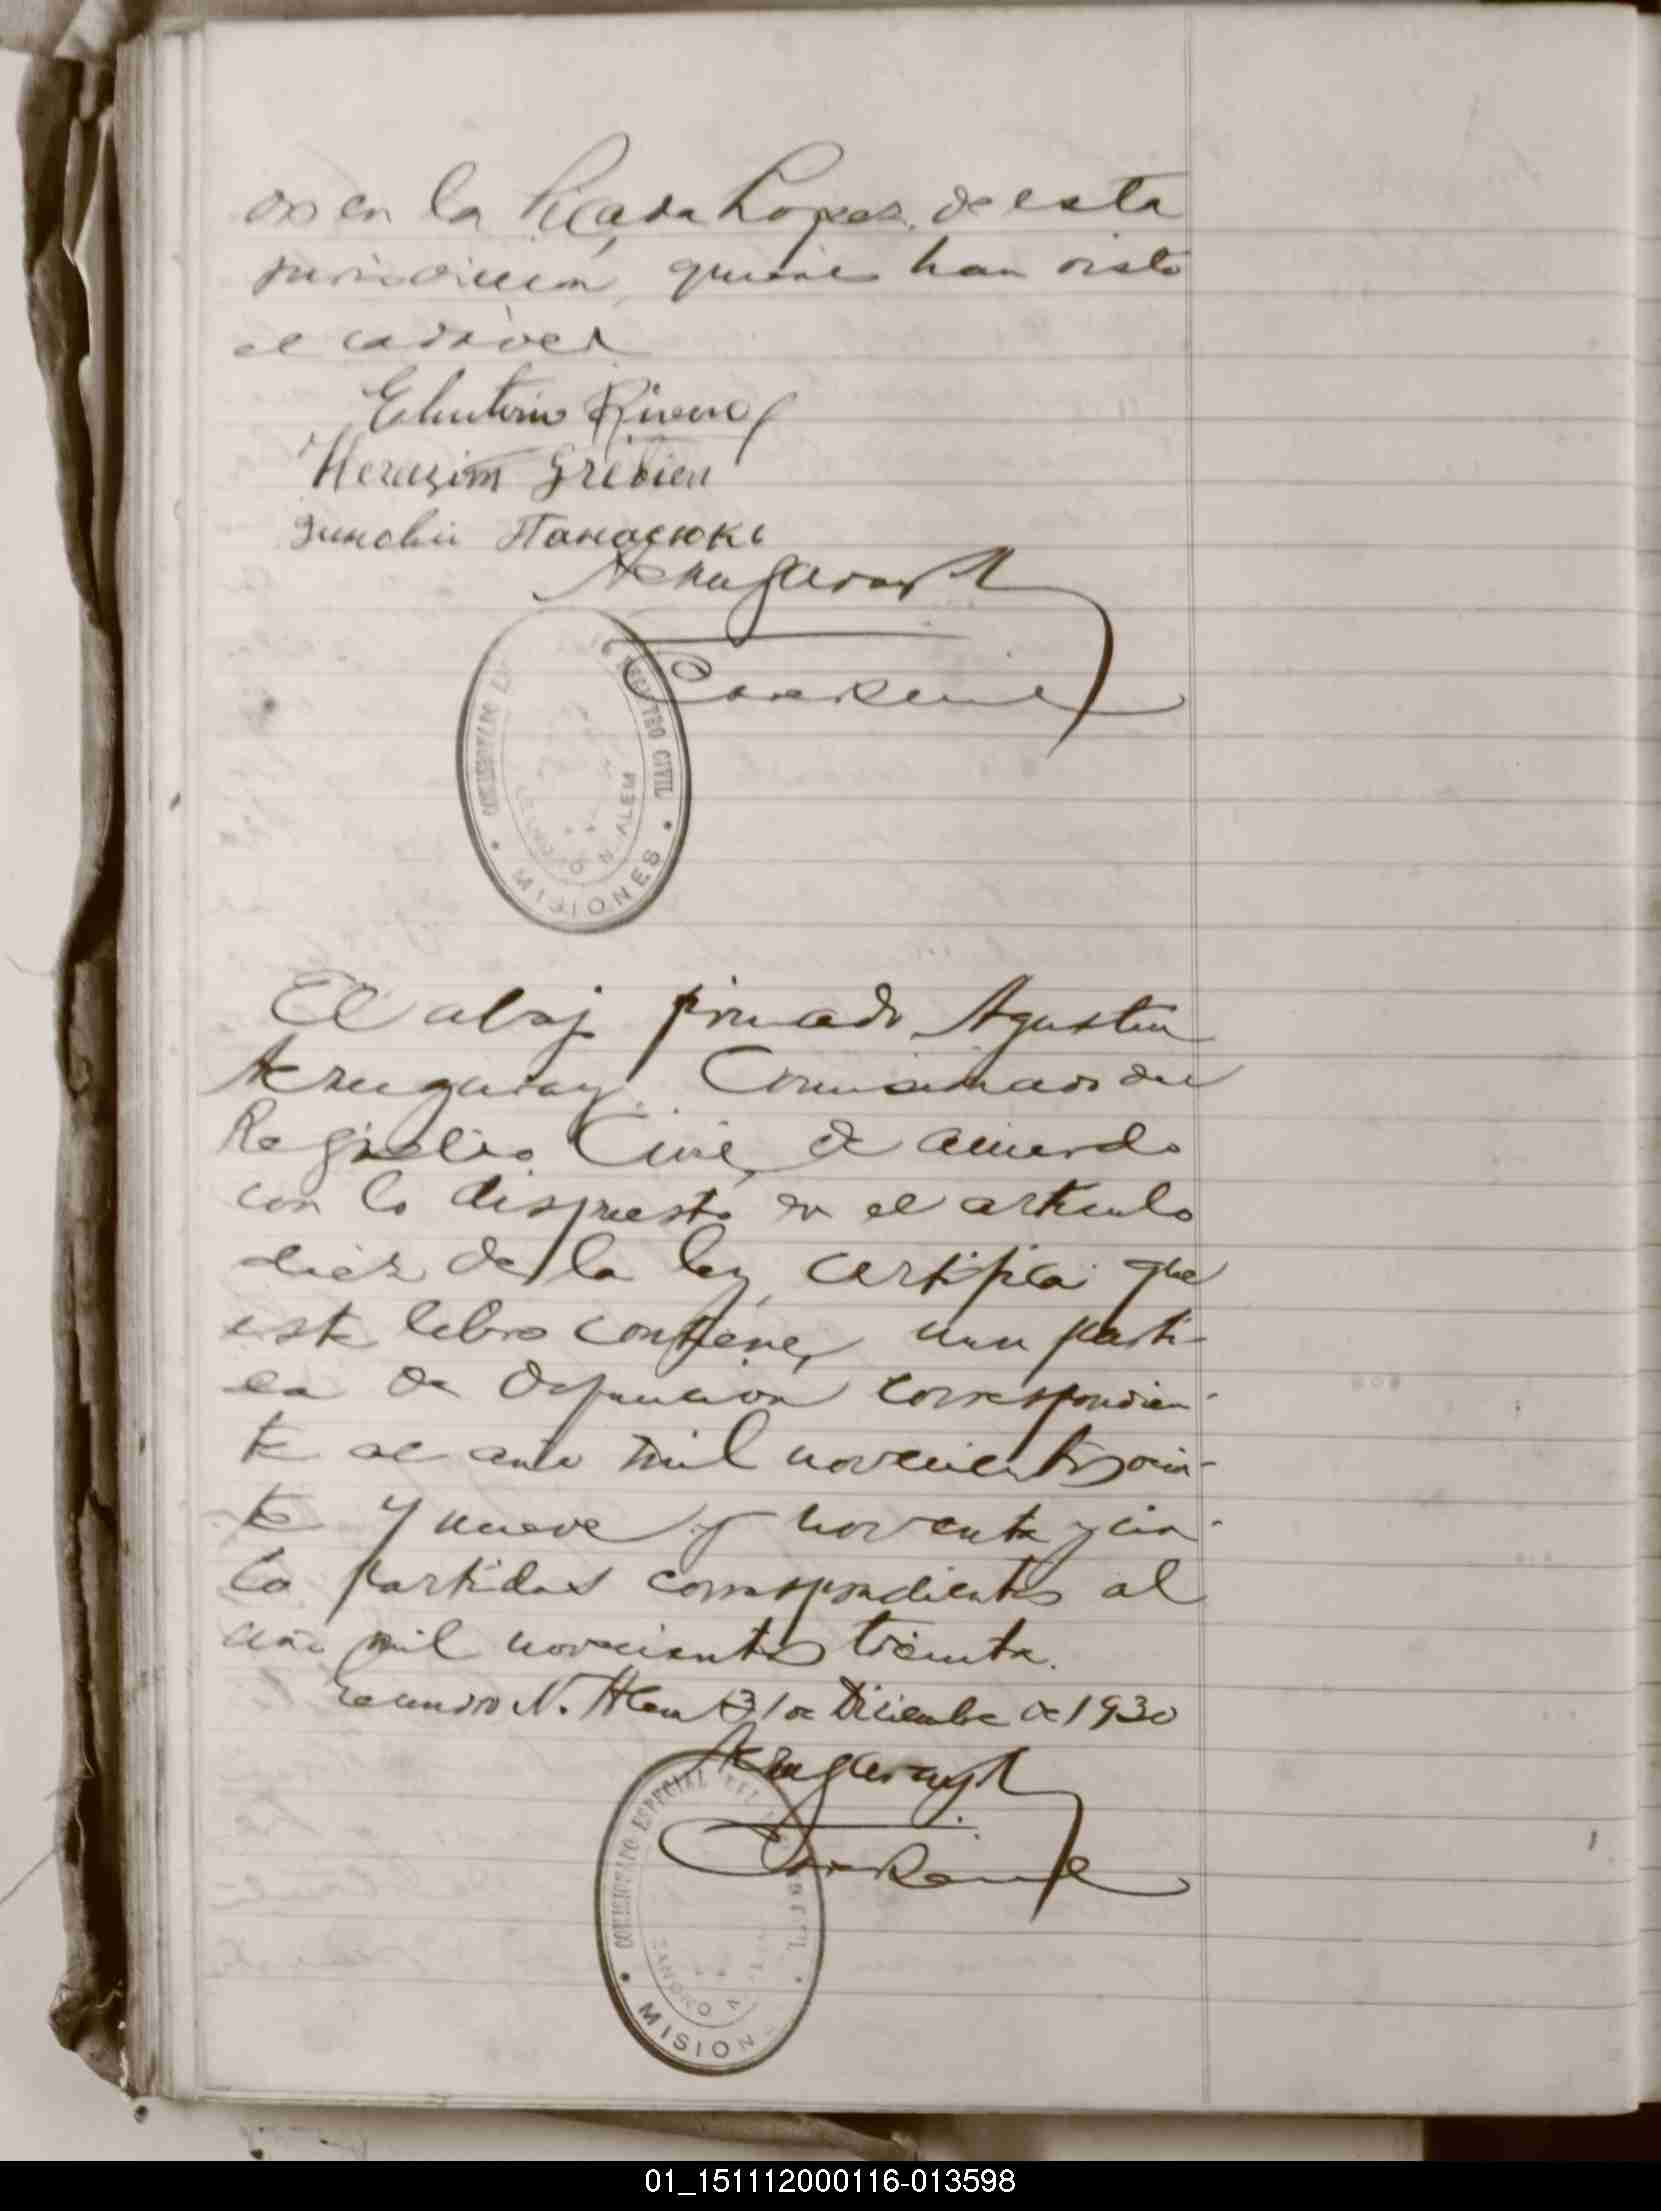 dos en la Picada Lopez, de esta
jurisdiccion, quienes han visto
el cadaver
Eleuterio Rivero
Herazim Grebien
Зиновiи Панасюкъ
Arrugaray
COMISIONADO REGISTRO CIVIL
LEANDRO N. ALEM
MISIONES
El abajo firmado Agustin
Arrugaray, Comisionado del
Registro Civil, de acuerdo
con lo dispuesto en el articulo
diez de la ley, certifica que
este libro contiene, una parti-
da de defuncion correspondien-
te al año mil novecientos vein-
te y nueve y noventa y cin-
co partidas correspondientes al
año mil novecientos treinta.
Leandro N. Alem 31 de Diciembre de 1930
Arrugaray
COMISIONADO ESPECIAL DEL CIVIL
LEANDRO N.
MISIONES
01_151112000116-013598